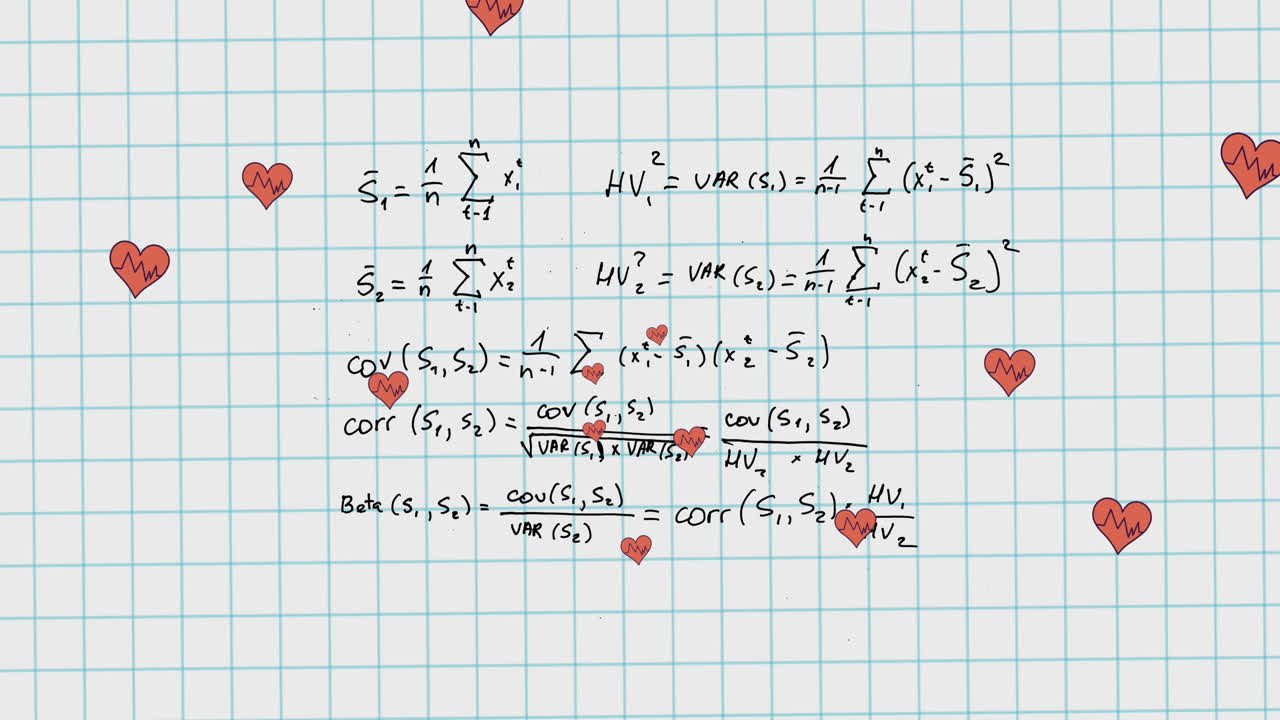 S̄₁ = 1/n ∑ⁿ_t-1 x₁ᵗ    HV₁² = VAR (S₁) = 1/n-1 ∑ⁿ_t-1 (x₁ᵗ - S̄₁)²
S̄₂ = 1/n ∑ⁿ_t-1 x₂ᵗ    HV₂? = VAR (S₂) = 1/n-1 ∑ⁿ_t-1 (x₂ᵗ - S̄₂)²
cov (S₁, S₂) = 1/n-1 ∑ (x₁ᵗ - S̄₁) (x₂ᵗ - S̄₂)
corr (S₁, S₂) = cov (S₁, S₂) / √VAR (S₁) x VAR (S₂)    cov (S₁, S₂) / HV₂ x HV₂
Beta (S₁, S₂) = cov (S₁, S₂) / VAR (S₂) = corr (S₁, S₂) · HV₁ / HV₂